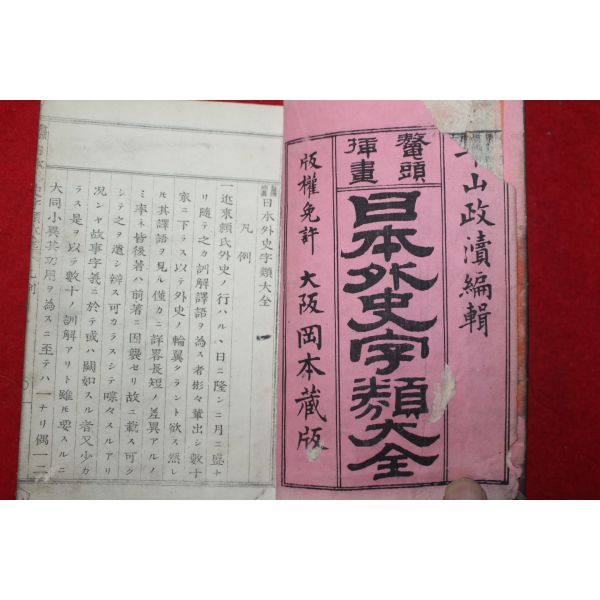 山政瀆編輯
鼇頭
挿畫
日本外史字類大全
版權免許 大阪 岡本蔵版
日本外史字類大全
凡例
一近來頼氏外史ノ行ハルヽ日ニ隆ンニ月ニ盛ナ
リ隨テ之カ訓解譯語ヲ為ス者彬々輩出シ數十
家ニ下ラス以テ外史ノ輪翼タラント欲ス然レ
𪜈其譯語ヲ見ル僅カニ詳畧長短ノ差異アルノ
ミ率子皆後著ハ前著ニ因襲セリ故ニ載ス可ク
シテ之ヲ遺シ辨ス可カラスシテ喋々スルアリ
况ンヤ故事字義ニ於テ或ハ闕如スル者又少カ
ラス是ヲ以テ數十ノ訓解アリト雖𪜈要スルニ
大同小異其功用ヲ為スニ至テハ一ナリ偶一二